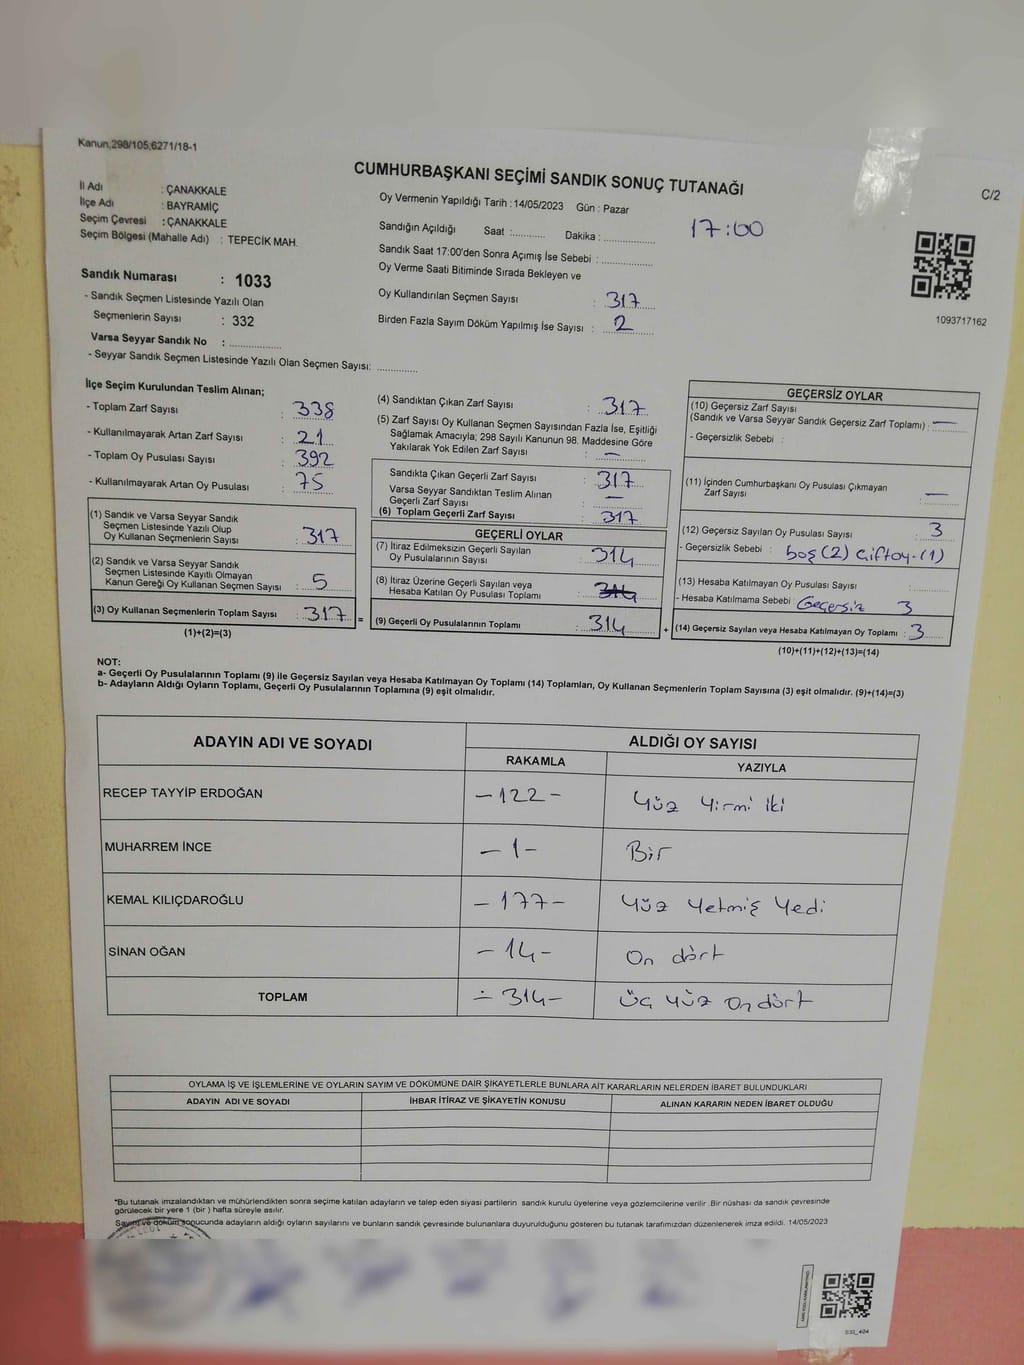 Kanun,298/105,6271/18-1
CUMHURBAŞKANI SEÇİMİ SANDIK SONUÇ TUTANAĞI
C/2
İl Adı : ÇANAKKALE
İlçe Adı : BAYRAMİÇ
Seçim Çevresi : ÇANAKKALE
Seçim Bölgesi (Mahalle Adı) : TEPECİK MAH.
Oy Vermenin Yapıldığı Tarih :14/05/2023 Gün : Pazar
Sandığın Açıldığı Saat :........... Dakika : ................ 17:00
Sandık Saat 17:00'den Sonra Açımış İse Sebebi : ................
Oy Verme Saati Bitiminde Sırada Bekleyen ve
Oy Kullandırılan Seçmen Sayısı : 317
Birden Fazla Sayım Döküm Yapılmış İse Sayısı : 2
1093717162
Sandık Numarası : 1033
- Sandık Seçmen Listesinde Yazılı Olan
Seçmenlerin Sayısı : 332
Varsa Seyyar Sandık No : ................
- Seyyar Sandık Seçmen Listesinde Yazılı Olan Seçmen Sayısı: .............
İlçe Seçim Kurulundan Teslim Alınan;
- Toplam Zarf Sayısı : 338
- Kullanılmayarak Artan Zarf Sayısı : 21
- Toplam Oy Pusulası Sayısı : 392
- Kullanılmayarak Artan Oy Pusulası : 75
(1) Sandık ve Varsa Seyyar Sandık
Seçmen Listesinde Yazılı Olup
Oy Kullanan Seçmenlerin Sayısı : 317
(2) Sandık ve Varsa Seyyar Sandık
Seçmen Listesinde Kayıtlı Olmayan
Kanun Gereği Oy Kullanan Seçmen Sayısı : 5
(3) Oy Kullanan Seçmenlerin Toplam Sayısı : 317 =
(1)+(2)=(3)
(4) Sandıktan Çıkan Zarf Sayısı : 317
(5) Zarf Sayısı Oy Kullanan Seçmen Sayısından Fazla İse, Eşitliği
Sağlamak Amacıyla; 298 Sayılı Kanunun 98. Maddesine Göre
Yakılarak Yok Edilen Zarf Sayısı : —
Sandıkta Çıkan Geçerli Zarf Sayısı : 317
Varsa Seyyar Sandıktan Teslim Alınan
Geçerli Zarf Sayısı : —
(6) Toplam Geçerli Zarf Sayısı : 317
GEÇERLİ OYLAR
(7) İtiraz Edilmeksizin Geçerli Sayılan
Oy Pusulalarının Sayısı : 314
(8) İtiraz Üzerine Geçerli Sayılan veya
Hesaba Katılan Oy Pusulası Toplamı : 314
(9) Geçerli Oy Pusulalarının Toplamı : 314 +
GEÇERSİZ OYLAR
(10) Geçersiz Zarf Sayısı
(Sandık ve Varsa Seyyar Sandık Geçersiz Zarf Toplamı) : —
- Geçersizlik Sebebi :
(11) İçinden Cumhurbaşkanı Oy Pusulası Çıkmayan
Zarf Sayısı : —
(12) Geçersiz Sayılan Oy Pusulası Sayısı : 3
- Geçersizlik Sebebi : boş (2) Çiftoy. (1)
(13) Hesaba Katılmayan Oy Pusulası Sayısı :
- Hesaba Katılmama Sebebi : Geçersiz 3
(14) Geçersiz Sayılan veya Hesaba Katılmayan Oy Toplamı : 3
(10)+(11)+(12)+(13)=(14)
NOT:
a- Geçerli Oy Pusulalarının Toplamı (9) ile Geçersiz Sayılan veya Hesaba Katılmayan Oy Toplamı (14) Toplamları, Oy Kullanan Seçmenlerin Toplam Sayısına (3) eşit olmalıdır. (9)+(14)=(3)
b- Adayların Aldığı Oyların Toplamı, Geçerli Oy Pusulalarının Toplamına (9) eşit olmalıdır.
ADAYIN ADI VE SOYADI
ALDIĞI OY SAYISI
RAKAMLA YAZIYLA
RECEP TAYYİP ERDOĞAN -122- Yüz Yirmi iki
MUHARREM İNCE -1- Bir
KEMAL KILIÇDAROĞLU -177- Yüz Yetmiş Yedi
SİNAN OĞAN -14- On dört
TOPLAM -314- Üç Yüz On dört
OYLAMA İŞ VE İŞLEMLERİNE VE OYLARIN SAYIM VE DÖKÜMÜNE DAİR ŞİKAYETLERLE BUNLARA AİT KARARLARIN NELERDEN İBARET BULUNDUKLARI
ADAYIN ADI VE SOYADI İHBAR İTİRAZ VE ŞİKAYETİN KONUSU ALINAN KARARIN NEDEN İBARET OLDUĞU
*Bu tutanak imzalandıktan ve mühürlendikten sonra seçime katılan adayların ve talep eden siyasi partilerin sandık kurulu üyelerine veya gözlemcilerine verilir .Bir nüshası da sandık çevresinde
görülecek bir yere 1 (bir ) hafta süreyle asılır.
Sayım ve döküm sonucunda adayların aldığı oyların sayılarını ve bunların sandık çevresinde bulunanlara duyurulduğunu gösteren bu tutanak tarafımızdan düzenlenerek imza edildi. 14/05/2023